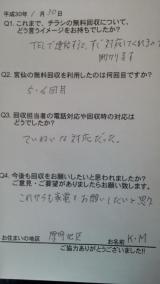 平成30年 / 月30日
Q1. これまで、チラシの無料回収について、
どう言うイメージをお持ちでしたか?
TELで連絡すると、すぐ対応してくれるので
助かります
Q2. 宮仙の無料回収を利用したのは何回目ですか?
5・6回目
Q3. 回収担当者の電話対応や回収時の対応は
どうでしたか?
ていねいな対応だった。
Q4. 今後も回収をお願いしたいと思われましたか?
ご意見・ご要望がありましたらお願い致します。
これからも家電をお願いしたいと思う
お住まいの地区
地区
お名前 K・M
ご協力ありがとうございました!!